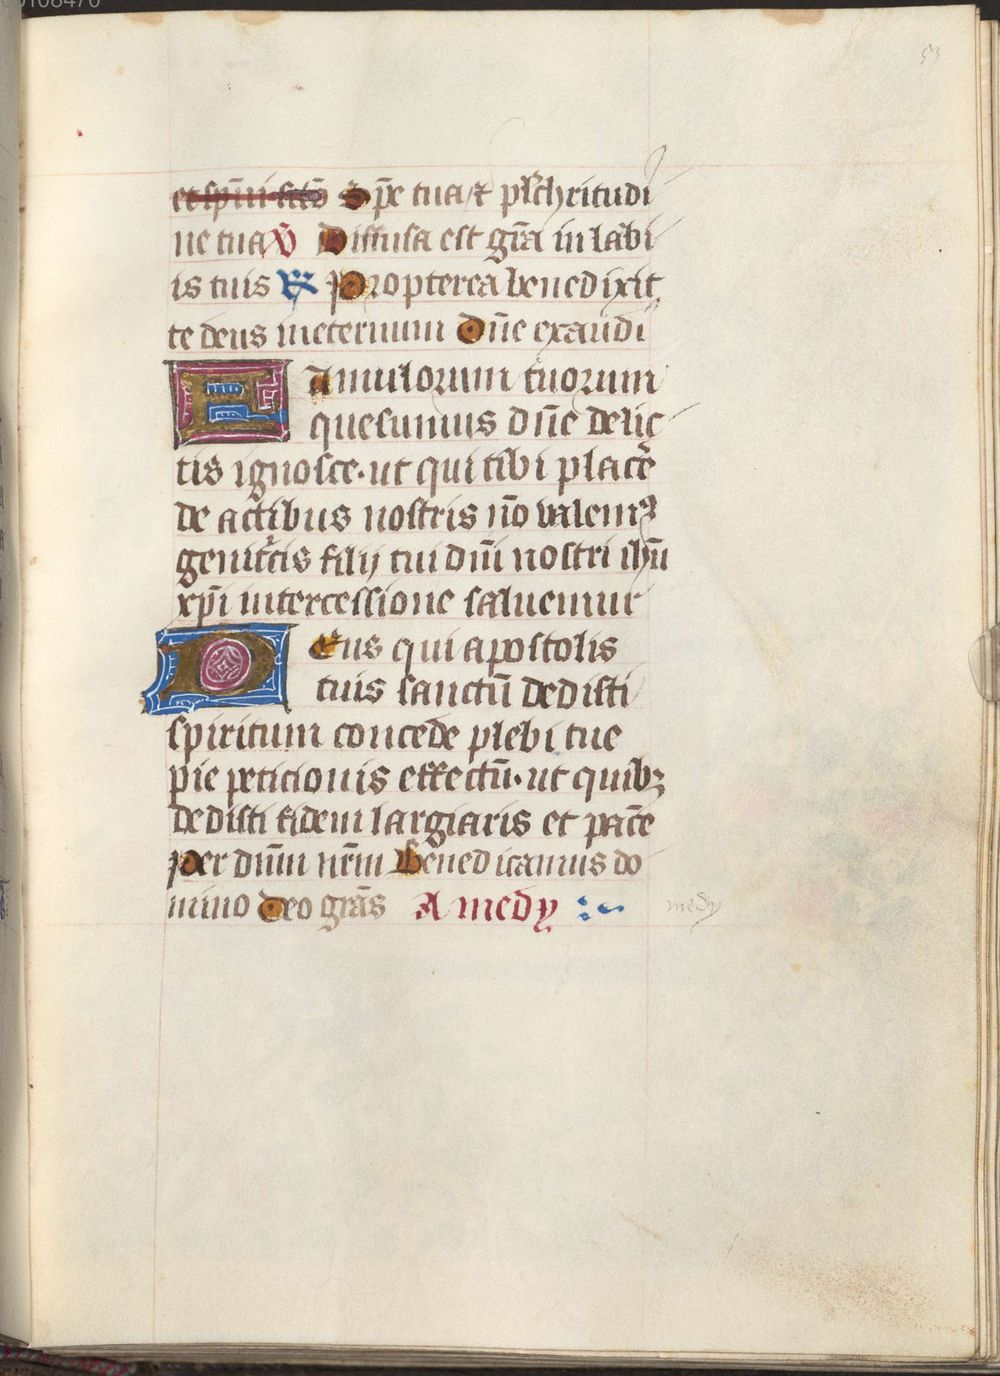 00108470
53
et spūi scō Spē tua ⁊ plchritudi
ne tua ℣ Diffusa est grā in labi
is tuis ℟ Propterea benedixit
te deus ineternum Dn̄e exaudi
Famulorum tuorum
quesumus dn̄e delic
tis ignosce · ut qui tibi placēe
de actibus nostris nō valemꝰ
genitcis filij tui dn̄i nostri ihū
xp̄i intercessione saluemur
Deus qui apostolis
tuis sanctū dedisti
spiritum concede plebi tue
pie peticionis effectū · ut quibꝫ
dedisti fidem largiaris et pacē
Per dn̄m nrm̄ Benedicamus do
mino Deo grās A medy
medy